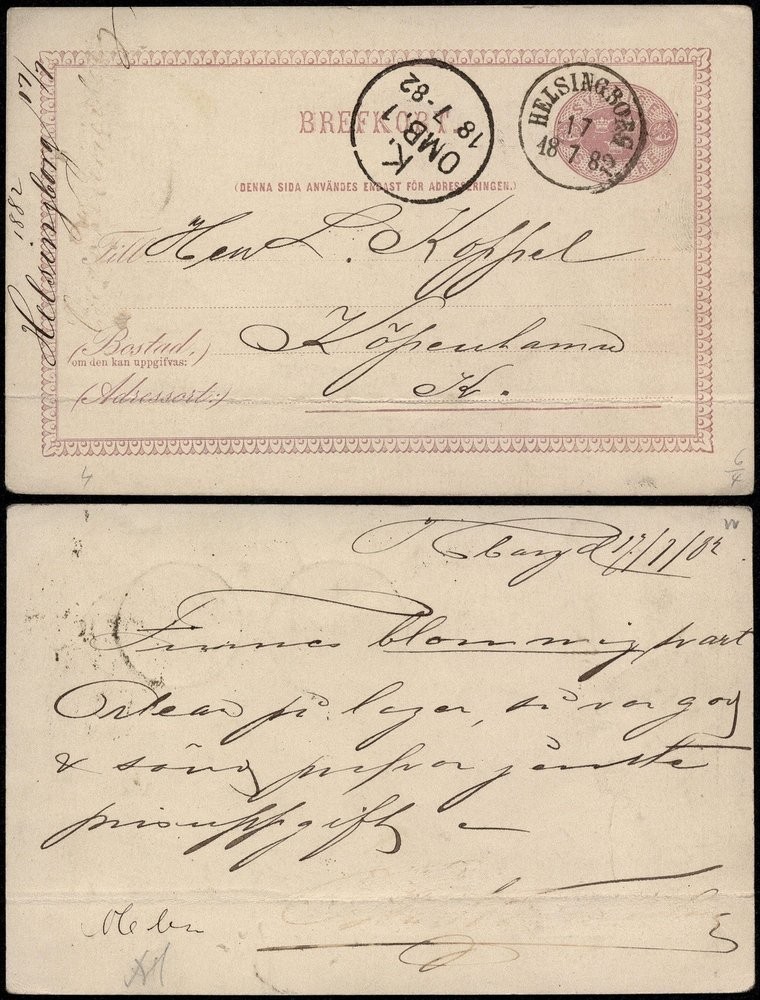 1882 17/7
Helsingborg
BREFKORT
K.
OMB.1
18 7-82
HELSINGBORG
17
18 7 82
(DENNA SIDA ANVÄNDES ENDAST FÖR ADRESSERINGEN.)
Till Herr L. Koppel
Köpenhamn
(Bostad,)
om den kan uppgifvas:
K.
(Adressort:)
4
6/4
borg d 17/7/82
Finnes blommig svart
Orlean på lager, så var god
& sänd prof o jemte
prisuppgift